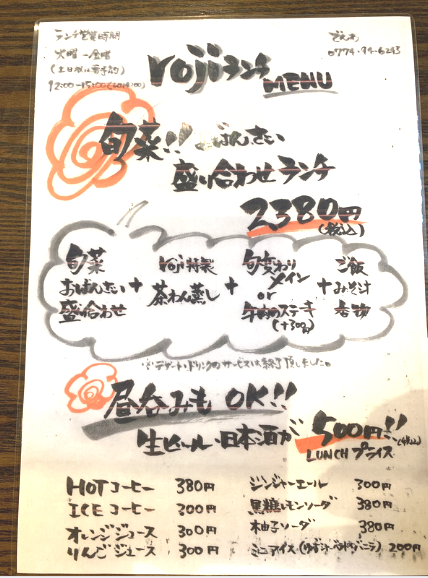 ランチ営業時間
火曜~金曜
(土日祝は要予約)
12:00~15:00(LO14:00)
0774-94-6243
rojiランチ
MENU
旬菜!! おばんざい
盛り合わせランチ
2380円
(税込)
旬菜
おばんざい
盛り合わせ
+
roji特製
茶わん蒸し
+
旬変わり
メイン
or
牛肉のステーキ
(+300円)
+
ご飯
みそ汁
香物
※デザート・ドリンクのサービスは終了致しました。
昼呑みも OK!!
生ビール・日本酒が 500円!!
(税込)
LUNCH プライス
HOTコーヒー 380円
ICEコーヒー 300円
オレンジジュース 300円
りんごジュース 300円
ジンジャーエール 300円
黒糖レモンソーダ 380円
柚子ソーダ 380円
ミニアイス(ゆずシャーベットorバニラ) 200円